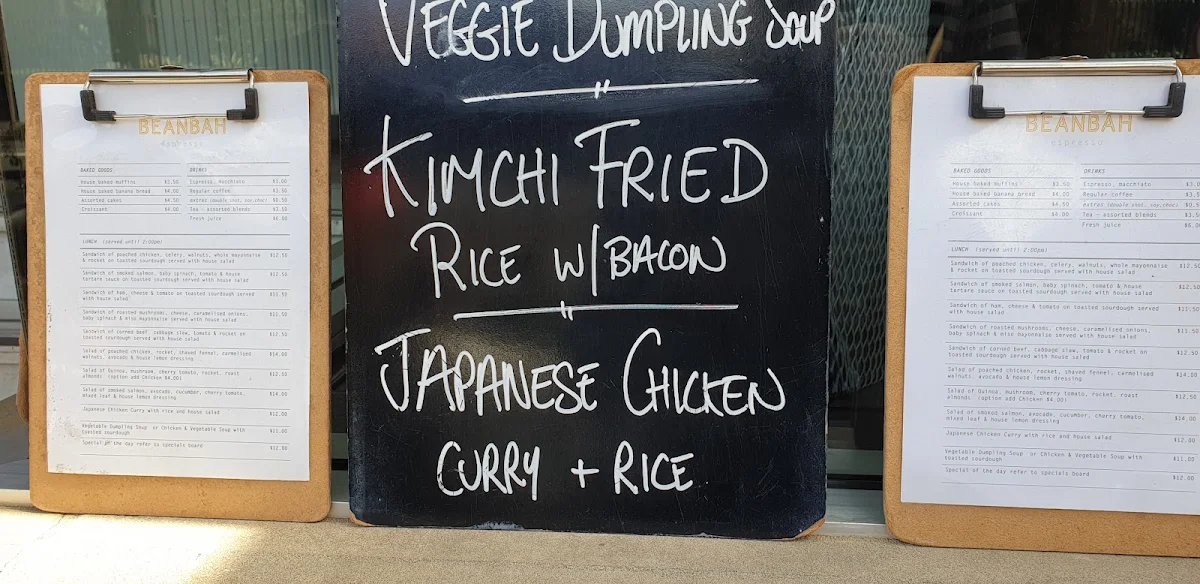 VEGGIE DUMPLING SOUP
KIMCHI FRIED
RICE W/ BACON
JAPANESE CHICKEN
CURRY + RICE
BEANBAH
espresso
BAKED GOODS
House baked muffins $3.50
House baked banana bread $4.00
Assorted cakes $4.50
Croissant $4.00
DRINKS
Espresso, Macchiato $3.00
Regular coffee $3.50
extras (double shot, soy, choc) $0.50
Tea - assorted blends $3.50
Fresh juice $6.00
LUNCH (served until 2:00pm)
Sandwich of poached chicken, celery, walnuts, whole mayonnaise $12.50
& rocket on toasted sourdough served with house salad
Sandwich of smoked salmon, baby spinach, tomato & house $12.50
tartare sauce on toasted sourdough served with house salad
Sandwich of ham, cheese & tomato on toasted sourdough served $11.50
with house salad
Sandwich of roasted mushrooms, cheese, caramelised onions, $11.50
baby spinach & miso mayonnaise served with house salad
Sandwich of corned beef, cabbage slaw, tomato & rocket on $12.50
toasted sourdough served with house salad
Salad of poached chicken, rocket, shaved fennel, carmelised $14.00
walnuts, avocado & house lemon dressing
Salad of Quinoa, mushroom, cherry tomato, rocket, roast $12.50
almonds (option add Chicken $4.00)
Salad of smoked salmon, avocado, cucumber, cherry tomato, $14.00
mixed leaf & house lemon dressing
Japanese Chicken Curry with rice and house salad $12.00
Vegetable Dumpling Soup or Chicken & Vegetable Soup with $11.00
toasted sourdough
Special of the day refer to specials board $12.00
BEANBAH
espresso
BAKED GOODS
House baked muffins $3.50
House baked banana bread $4.00
Assorted cakes $4.50
Croissant $4.00
DRINKS
Espresso, Macchiato
Regular coffee
extras (double shot, soy, choc)
Tea - assorted blends
Fresh juice
LUNCH (served until 2:00pm)
Sandwich of poached chicken, celery, walnuts, whole mayonnaise $12.50
& rocket on toasted sourdough served with house salad
Sandwich of smoked salmon, baby spinach, tomato & house $12.50
tartare sauce on toasted sourdough served with house salad
Sandwich of ham, cheese & tomato on toasted sourdough served $11.50
with house salad
Sandwich of roasted mushrooms, cheese, caramelised onions, $11.50
baby spinach & miso mayonnaise served with house salad
Sandwich of corned beef, cabbage slaw, tomato & rocket on $12.50
toasted sourdough served with house salad
Salad of poached chicken, rocket, shaved fennel, carmelised $14.00
walnuts, avocado & house lemon dressing
Salad of Quinoa, mushroom, cherry tomato, rocket, roast $12.50
almonds (option add Chicken $4.00)
Salad of smoked salmon, avocado, cucumber, cherry tomato, $14.00
mixed leaf & house lemon dressing
Japanese Chicken Curry with rice and house salad $12.00
Vegetable Dumpling Soup or Chicken & Vegetable Soup with $11.00
toasted sourdough
Special of the day refer to specials board $12.00